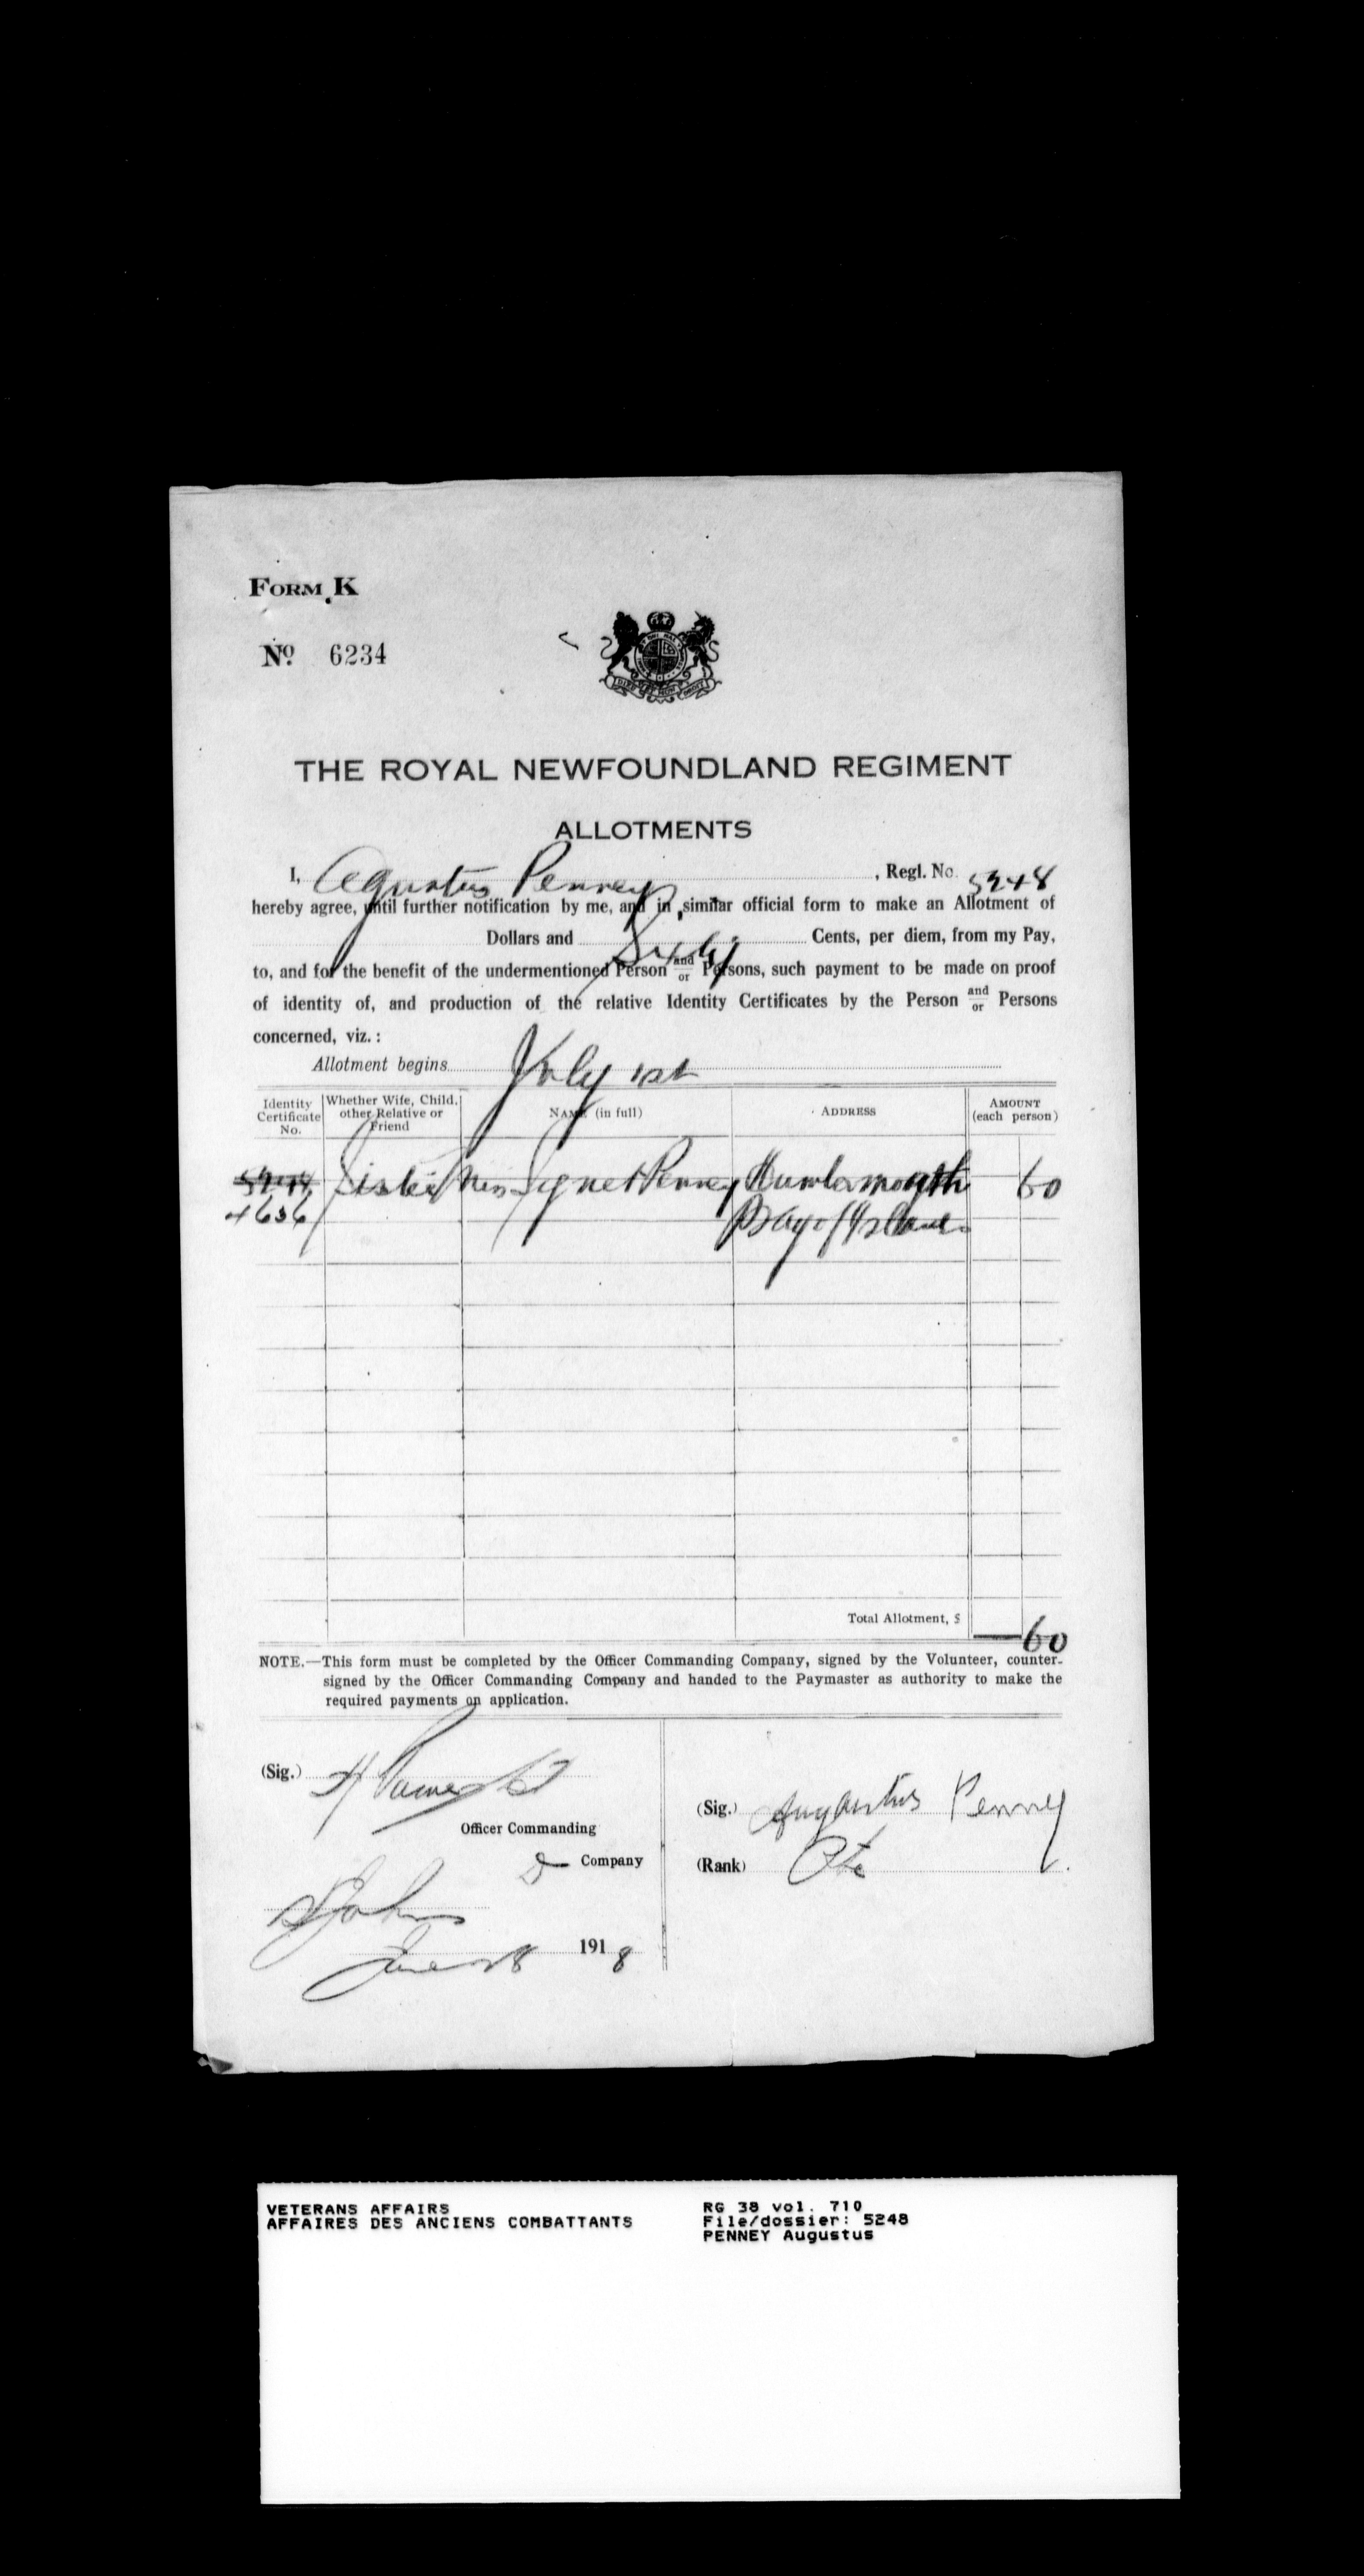 FORM K
No. 6234
THE ROYAL NEWFOUNDLAND REGIMENT
ALLOTMENTS
I, Agustus Penney, Regl. No. 5248
hereby agree, until further notification by me, and in similar official form to make an Allotment of
Dollars and Sixty Cents, per diem, from my Pay,
to, and for the benefit of the undermentioned Person and/or Persons, such payment to be made on proof
of identity of, and production of the relative Identity Certificates by the Person and/or Persons
concerned, viz.:
Allotment begins July 1st
Identity Certificate No. Whether Wife, Child, other Relative or Friend NAME (in full) ADDRESS AMOUNT (each person)
Sister Penney Humbermouth 60
4636 Bay of Islands
Total Allotment, $ 60
NOTE.—This form must be completed by the Officer Commanding Company, signed by the Volunteer, counter-
signed by the Officer Commanding Company and handed to the Paymaster as authority to make the
required payments on application.
(Sig.)
Officer Commanding
D Company
St Johns
June 28 1918
(Sig.) Augustus Penney
(Rank) Pte
VETERANS AFFAIRS
AFFAIRES DES ANCIENS COMBATTANTS
RG 38 vol. 710
File/dossier: 5248
PENNEY Augustus